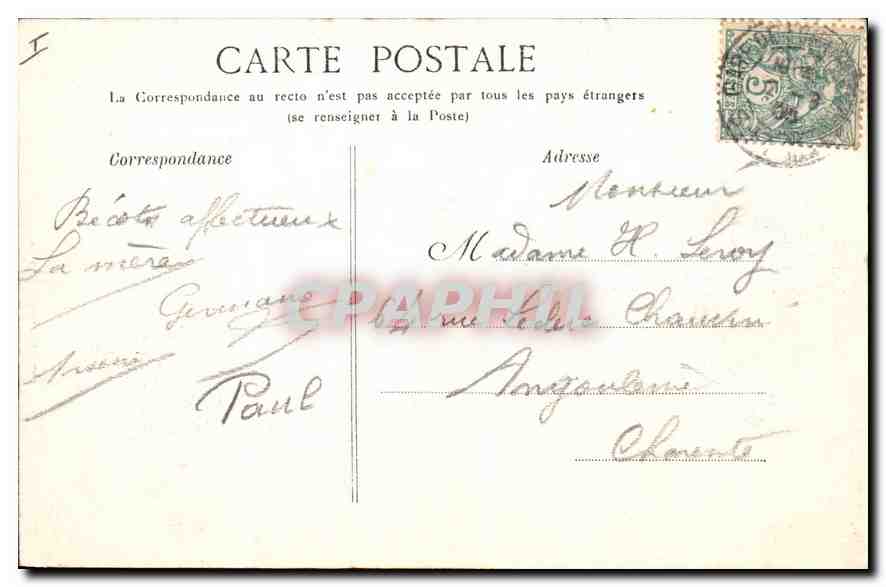 I
CARTE POSTALE
La Correspondance au recto n'est pas acceptée par tous les pays étrangers
(se renseigner à la Poste)
Correspondance
Adresse
Bécots affectueux
La mère
Germane
Paul
Monsieur
Madame H. Leroy
64 rue Leclerc Chauvin
Angoulême
Charente
CPAPHIL
5c
GARE